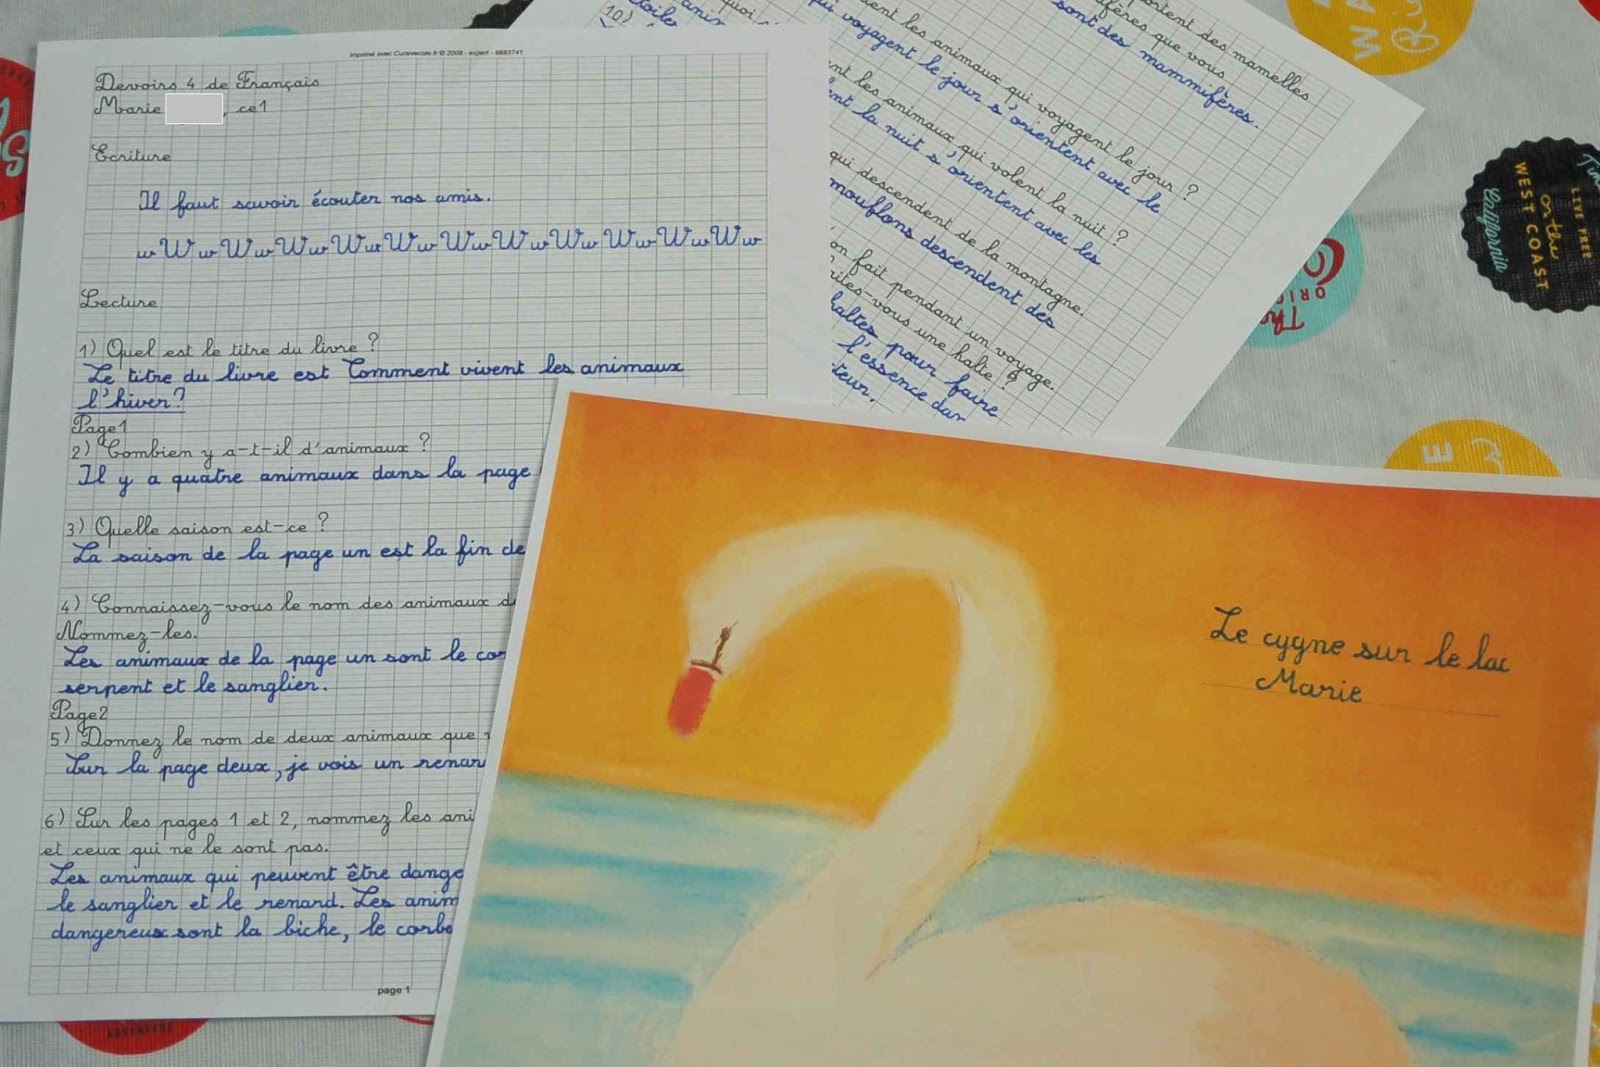 Imprimé avec Cursivecole.fr © 2008 - expert - 8883741
Devoirs 4 de Français
Marie , ce1
Ecriture
Il faut savoir écouter nos amis.
w W w W w W w W w W w W w W w W w W w W w W w
Lecture
1) Quel est le titre du livre ?
Le titre du livre est Comment vivent les animaux
l'hiver?
Page1
2) Combien y a-t-il d'animaux ?
Il y a quatre animaux dans la page
3) Quelle saison est-ce ?
La saison de la page un est la fin de
4) Connaissez-vous le nom des animaux d
Nommez-les.
Les animaux de la page un sont le cor
serpent et le sanglier.
Page2
5) Donnez le nom de deux animaux que
Sur la page deux, je vois un renar
6) Sur les pages 1 et 2, nommez les ani
et ceux qui ne le sont pas.
Les animaux qui peuvent être dange
le sanglier et le renard. Les anim
dangereux sont la biche, le corbe
page 1
10)
étoiles
anim
portent des mamelles
fères que vous
sont des mammifères.
ent les animaux qui voyagent le jour ?
qui voyagent le jour s'orientent avec le
ent les animaux qui volent la nuit ?
ent la nuit s'orientent avec les
qui descendent de la montagne.
mouflons descendent des
on fait pendant un voyage.
ites-vous une halte ?
haltes pour faire
l'essence dan
teur.
Le cygne sur le lac
Marie
LIVE FREE
on the
WEST COAST
California
The
ORIG
ADVENTURE